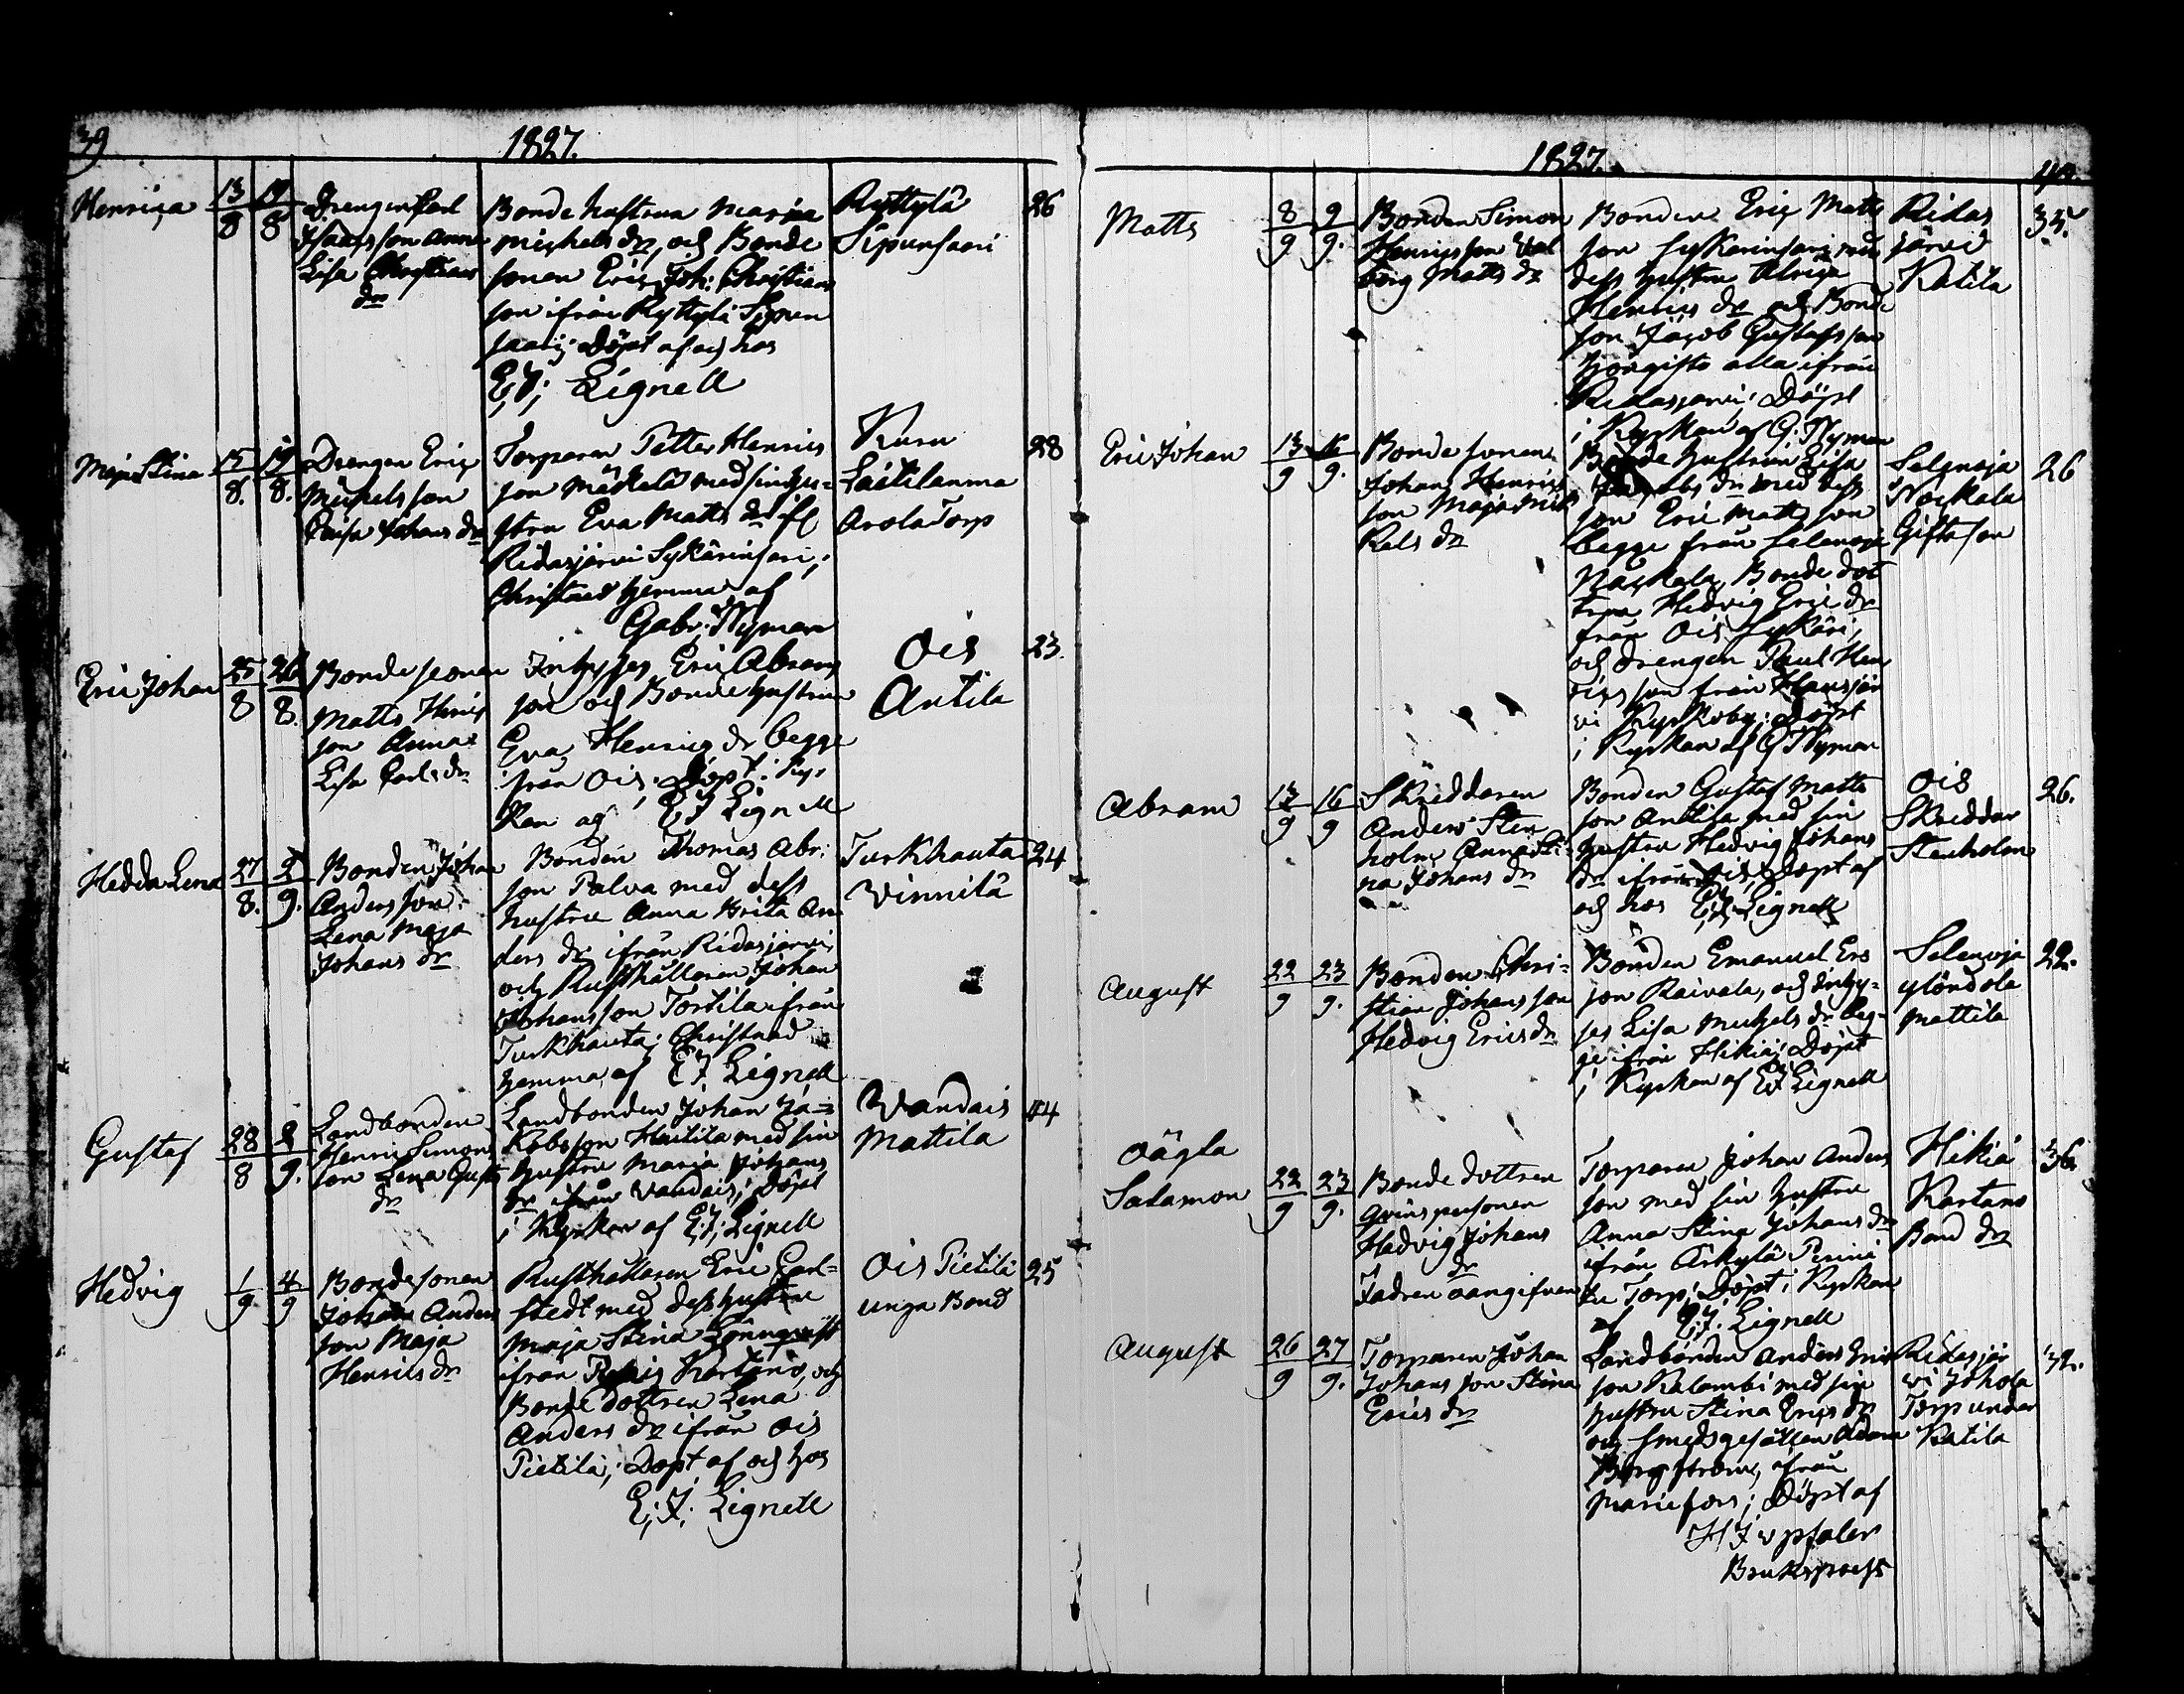 39
1827.
Henrica
13/8
19/8
Drengen Carl
Isaacs son Anna
Lisa Christians
dr
Bonde hustrun Maria
Michels dr, och Bonde
sonen Eric Joh: Christians
son ifrån Ryttylä Sipun
saari; Döpt af och hos
E; J; Lignell
Ryttylä
Sipunsaari
26
Maja Stina
15/8.
19/8.
Drengen Eric
Michels son
Caisa Johans dr
Torparen Petter Henrics
son Mäkelä med sin hu-
stru Eva Matts dr
Ridasjärvi Sykärinsari;
Christnad hemma af
Gabr: Nyman
Kuru
Laitilanma
Arola Torp
28
Eric Johan
25/8
26/8.
Bonde sonen
Matts Henric
son Anna
Lisa Carls dr
Inhyses Eric Abrams
son och Bonde hustrun
Eva Henrics dr begge
från Ois. Döpt i Kyr
kan af E J Lignell
Ois
Antila
23.
Hedda Lena
27/8.
2/9.
Bonden Johan
Anders son
Lena Maja
Johans dr
Bonden Thomas Abr:
son Palva med dess
hustru Anna Brita An
ders dr ifrån Ridasjärvi
och Rusthållaren Johan
Johansson Torkila ifrån
Turkhauta; Christnad
hemma af E J. Lignell
Turkhauta
Vinnilä
24
Gustaf
28/8
2/9.
Landbonden
Henric Simons
son Lena Gusts
dr
Landbonden Johan Ja-
kobs son Haitila med sin
hustru Maria Johans
dr ifrån Vandais; Döpt
i Kyrkan af E; J; Lignell
Vandais
Mattila
44
Hedvig
1/9
4/9
Bonde sonen
Johan Anders
son Maja
Henrics dr
Rusthållaren Eric Carl-
stedt med dess hustru
Maja Stina Lönnqvist
ifrån Kartano, och
Bonde dottren Lena
Anders dr ifrån Ois
Pietilä; Döpt af och hos
E; J; Lignell
Ois Pietilä
unga Bond
25
1827.
40.
Matts
8/9
9/9.
Bonden Simon
Henrics son Val
borg Matts dr
Bonden Eric Matts
son Sykerinsari med
dess hustru Ulrica
Henrics dr och Bonde
son Jacob Gustafsson
alla ifrån
Ridasjärvi: Döpt
i Kyrkan af G: Nyman
Ridas
järvi
Katila
35.
Eric Johan
13/9
16/9.
Bonde sonen
Johan Henrics
son Maja Mic
kels dr
Bonde hustrun Lisa
Jacobs dr med dess
son Eric Matts son
begge från Selenoja
Nackala, Bonde dot
tren Hedvig Eric dr
från Ois Sykäri,
och drengen Paul Hen
rics son från Hausjär
vi Kyrkoby; Döpt
i Kyrkan af G Nyman
Selenoja
Nackala
Gifta son
26
Abram
13/9
16/9
Skreddaren
Anders Sten
holm Anna Sti
na Johans dr
Bonden Gustaf Matts
son Antila med sin
hustru Hedvig Johans
dr ifrån Ois; Döpt af
och hos E; J; Lignell
Ois
Skreddar
Stenholm
26.
August
22/9
23/9.
Bonden Chri-
stian Johans son
Hedvig Erics dr
Bonden Emanuel Ers
son Raivala, och Inhy-
ses Lisa Michels dr beg-
ge ifrån Hikiä; Döpt
i Kyrkan af E J Lignell
Selenoja
ylöndola
Mattila
22.
Oägta
Salamon
22/9
23/9.
Bonde dottren
qvinspersonen
Hedvig Johans
dr
Fadren oangifven
Torparen Johan Anders
son med sin hustru
Anna Stina Johans dr
ifrån Arkylä
Torp; Döpt i Kyrkan
af E; J. Lignell
Hikiä
Kartano
Bond dr
36.
August
26/9
27/9.
Torparen Johan
Johans son Stina
Erics dr
Landbonden Anders Erics
son Kalambi med sin
hustru Stina Erics dr
och smedsgesällen Adam
Bergström, ifrån
Mariefors; Döpt af
H J Upsaler
Brukspräst
Ridasjär
vi Johola
Torp under
Katila
32.